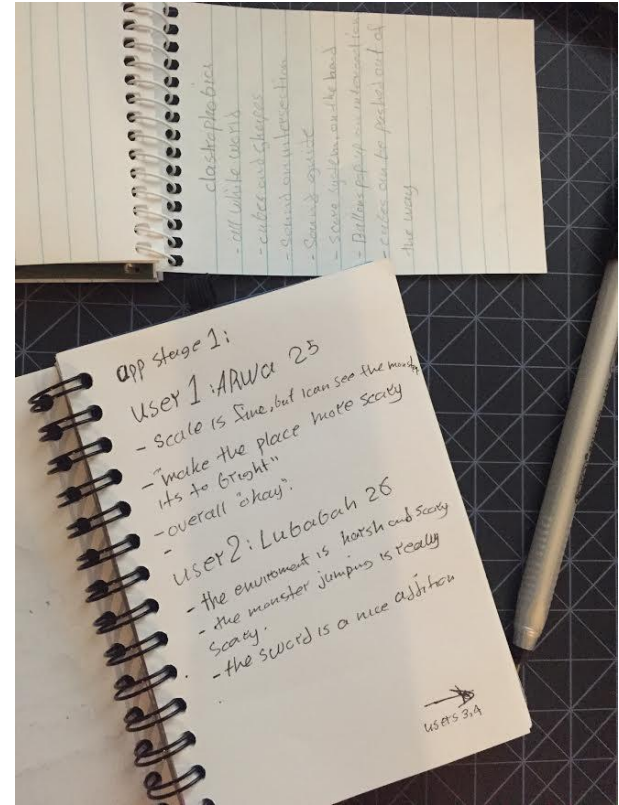 clastrophobics
- all white world
- cubes and shapes
- sound on intersection
- sound guide
- score system on the hand
- Ballons popup on intersection
- cubes can be pushed out of
the way
app stage 1:
user 1 : ARWa 25
- scale is fine, but I can see the monster
- "make the place more scary
its to bright"
- overall "okay".
-
user2: Lubabah 26
- the enviroment is harsh and scary
- the monster jumping is really
scary.
- the sword is a nice addition
users 3,4